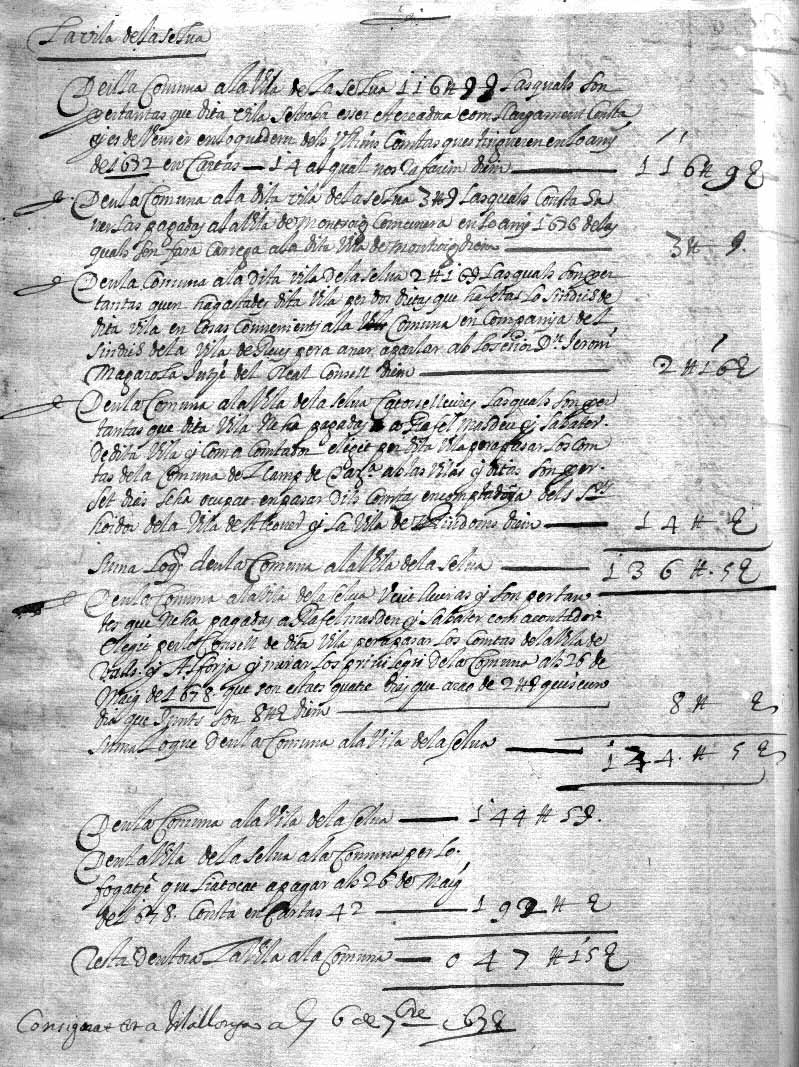 La vila de la selva
Deu la Comuna a la Vila de La selva 116 ħ 9 ȣ Lasquals son
pertantas que dita Vila se troba esser acreadora com llargament Consta
y es de veurer en lo quedern dels Ultims Comtas que tingueren en lo añy
de 1672 en Cartas — 14 al qual nos diem — 116 ħ 9 ȣ
Deu la Comuna a la dita vila de la selva 3 ħ 9 Lasquals Consta
pagadas a la Vila de Montroig en lo añy 1676 delas
quals sen fara Carrega a la dita Vila de montroig diem — 3 ħ 9.
Deu la Comuna a la Dita vila De la selva 2 ħ 16 ȣ Lasquals son per
tantas quen ha gastades dita Vila per dos dietas que ha fetas Lo Sindich de
dita vila en Cosas Convenients a la Comuna en Compania del
Sindich de la Vila de Reus pera anar a parlar ab Lo señor Dⁿ Jeroni
Magarola Jutje del Real Consell diem — 2 ħ 16 ȣ
Deu la Comuna a la Vila de la selva Catorse lleures Lasquals son per
tantas que dita Vila ne ha pagadas a Rafel masdeu y Sabater
De dita Vila y Com a Comtador elegit per dita Vila pera pasar Los Com
tas de la Comuna del Camp de Tarª ab las Vilas y ditas son per
set dies se ha ocupat en pasar Dits Comtas en dels Sʳˢ
hoidor de la Vila de Alcover y La Vila de Riudoms diem — 14 ħ ȣ
Suma Loq deu la Comuna a la Vila de la selva — 136 ħ 5 ȣ
Deu la Comuna a la Vila de la selva Vuit lliuras y son per tan
tes que ne ha pagadas a Rafel masdeu y Sabater com a contador
elegit per lo Consell de dita Vila pera pasar Los Comtas de la Vila de
Valls y Alforja y mirar Los privilegis de la Comuna als 26 de
Maig de 1678. que son estats quatre dies que a rao de 2 ħ ȣ quiscun
dia que Junts son 8 ħ ȣ diem — 8 ħ ȣ
Suma Lo que Deu la Comuna a la Vila de la selva — 144 ħ 5 ȣ
Deu la Comuna a la Vila de la selva — 144 ħ 5 ȣ.
Deu la Vila de la selva a la Comuna per lo
fogatje que li a tocat a pagar als 26 de Maig
de 1678. Consta en Cartas 42 — 192 ħ ȣ
Resta Deutora La Vila a la Comuna — 047 ħ 15 ȣ
Consignat era Vilallonga a 6 de 7bre 1678